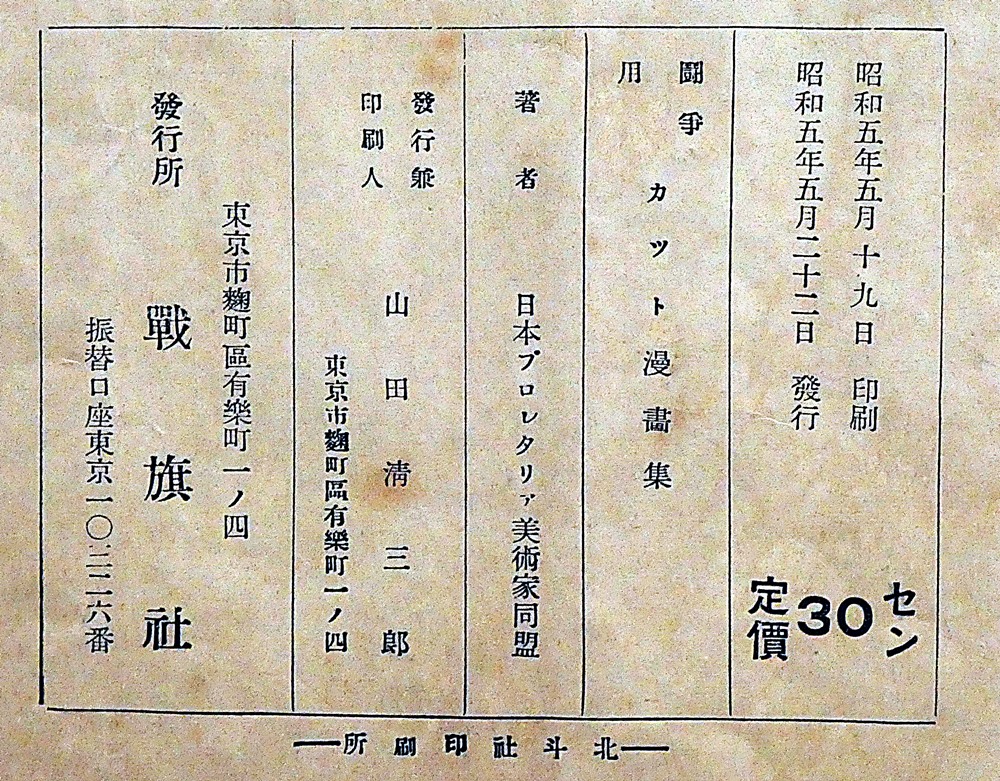 昭和五年五月十九日 印刷
昭和五年五月二十二日 發行
定價30セン
闘爭用 カット漫畵集
著者 日本プロレタリア美術家同盟
發行兼印刷人 山田淸三郎
東京市麴町區有樂町一ノ四
東京市麴町區有樂町一ノ四
發行所 戰旗社
振替口座東京一〇二二六番
北斗社印刷所